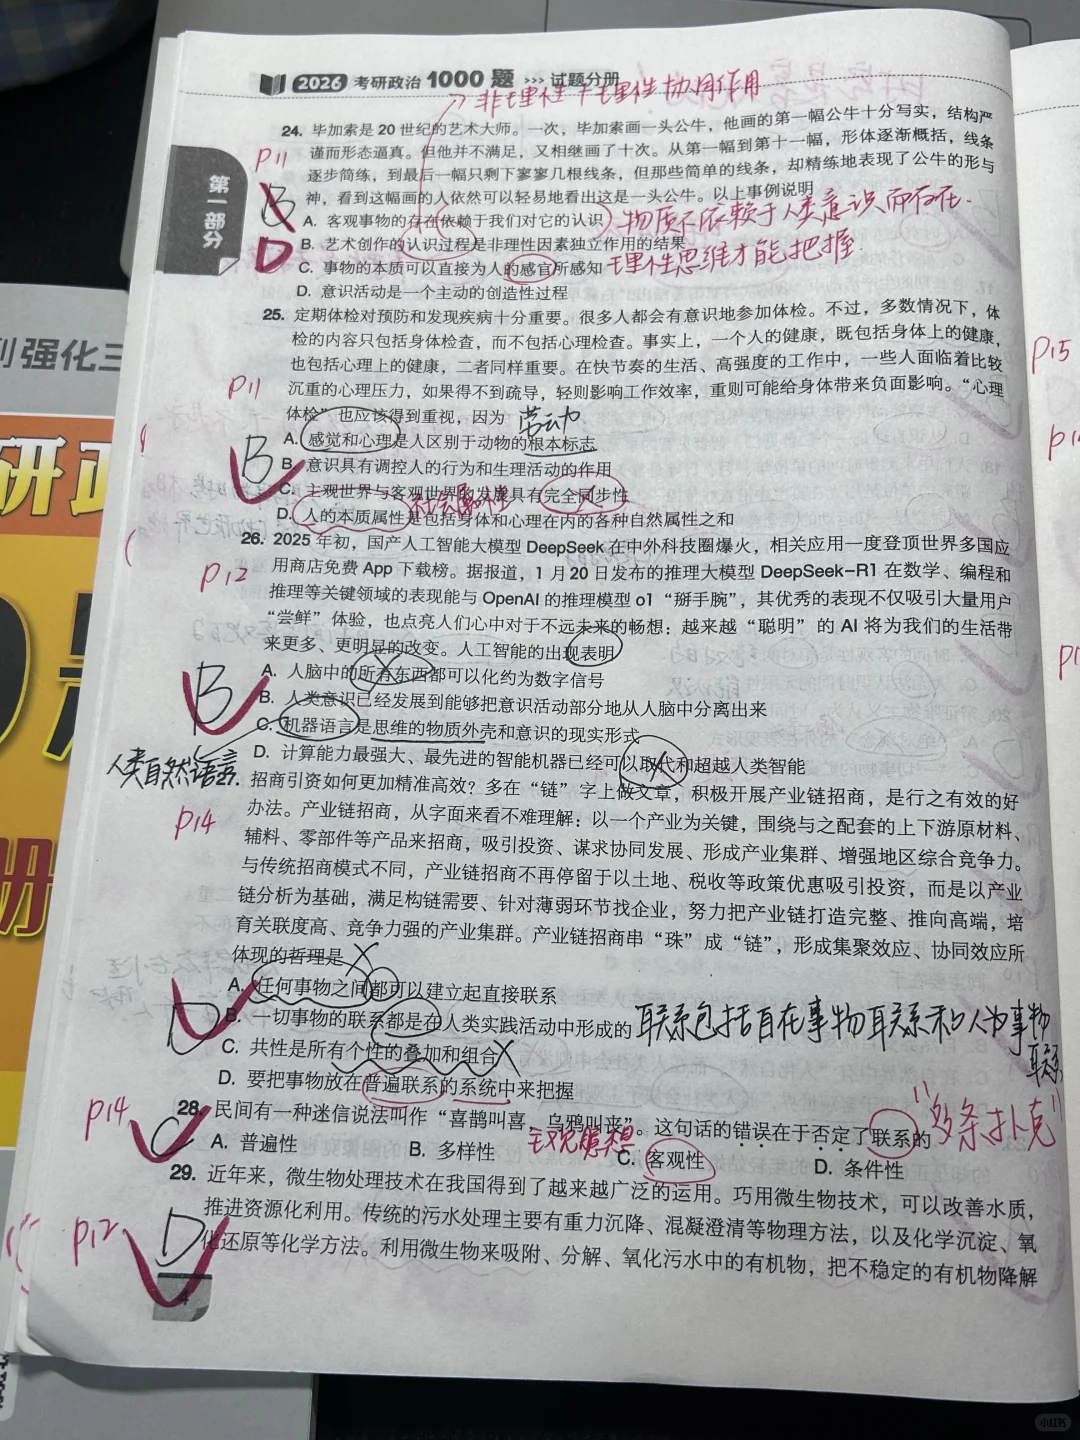 2026 考研政治 1000 题 >>> 试题分册
非理性+理性协同作用
24. 毕加索是 20 世纪的艺术大师。一次，毕加索画一头公牛，他画的第一幅公牛十分写实，结构严
谨而形态逼真。但他并不满足，又相继画了十次。从第一幅到第十一幅，形体逐渐概括，线条
P11
逐步简练，到最后一幅只剩下寥寥几根线条，但那些简单的线条，却精练地表现了公牛的形与
第一部分
B
神，看到这幅画的人依然可以轻易地看出这是一头公牛。以上事例说明
A. 客观事物的存在依赖于我们对它的认识 物质不依赖于人类意识而存在.
D
B. 艺术创作的认识过程是非理性因素独立作用的结果
C. 事物的本质可以直接为人的感官所感知 理性思维才能把握.
D. 意识活动是一个主动的创造性过程
25. 定期体检对预防和发现疾病十分重要。很多人都会有意识地参加体检。不过，多数情况下，体
检的内容只包括身体检查，而不包括心理检查。事实上，一个人的健康，既包括身体上的健康，
也包括心理上的健康，二者同样重要。在快节奏的生活、高强度的工作中，一些人面临着比较
P11
沉重的心理压力，如果得不到疏导，轻则影响工作效率，重则可能给身体带来负面影响。“心理
体检”也应该得到重视，因为
劳动
A. 感觉和心理是人区别于动物的根本标志
B
B. 意识具有调控人的行为和生理活动的作用
C. 主观世界与客观世界的发展具有完全同步性
社会属性
D. 人的本质属性是包括身体和心理在内的各种自然属性之和
26. 2025 年初，国产人工智能大模型 DeepSeek 在中外科技圈爆火，相关应用一度登顶世界多国应
P12
用商店免费 App 下载榜。据报道，1 月 20 日发布的推理大模型 DeepSeek-R1 在数学、编程和
推理等关键领域的表现能与 OpenAI 的推理模型 o1“掰手腕”，其优秀的表现不仅吸引大量用户
“尝鲜”体验，也点亮人们心中对于不远未来的畅想：越来越“聪明”的 AI 将为我们的生活带
来更多、更明显的改变。人工智能的出现表明
A. 人脑中的所有东西都可以化约为数字信号
B
B. 人类意识已经发展到能够把意识活动部分地从人脑中分离出来
C. 机器语言是思维的物质外壳和意识的现实形式
D. 计算能力最强大、最先进的智能机器已经可以取代和超越人类智能
人类自然语言
27. 招商引资如何更加精准高效？多在“链”字上做文章，积极开展产业链招商，是行之有效的好
P14
办法。产业链招商，从字面来看不难理解：以一个产业为关键，围绕与之配套的上下游原材料、
辅料、零部件等产品来招商，吸引投资、谋求协同发展、形成产业集群、增强地区综合竞争力。
与传统招商模式不同，产业链招商不再停留于以土地、税收等政策优惠吸引投资，而是以产业
链分析为基础，满足构链需要、针对薄弱环节找企业，努力把产业链打造完整、推向高端，培
育关联度高、竞争力强的产业集群。产业链招商串“珠”成“链”，形成集聚效应、协同效应所
体现的哲理是
A. 任何事物之间都可以建立起直接联系
D
B. 一切事物的联系都是在人类实践活动中形成的 联系包括自在事物联系和人为事物
联系
C. 共性是所有个性的叠加和组合
D. 要把事物放在普遍联系的系统中来把握
P14
28. 民间有一种迷信说法叫作“喜鹊叫喜，乌鸦叫丧”。这句话的错误在于否定了联系的
“多条扑克”
C
主观臆想
A. 普遍性 B. 多样性 C. 客观性 D. 条件性
29. 近年来，微生物处理技术在我国得到了越来越广泛的运用。巧用微生物技术，可以改善水质，
推进资源化利用。传统的污水处理主要有重力沉降、混凝澄清等物理方法，以及化学沉淀、氧
P12
D
化还原等化学方法。利用微生物来吸附、分解、氧化污水中的有机物，把不稳定的有机物降解
4
强化三
研
册
P15
小红书